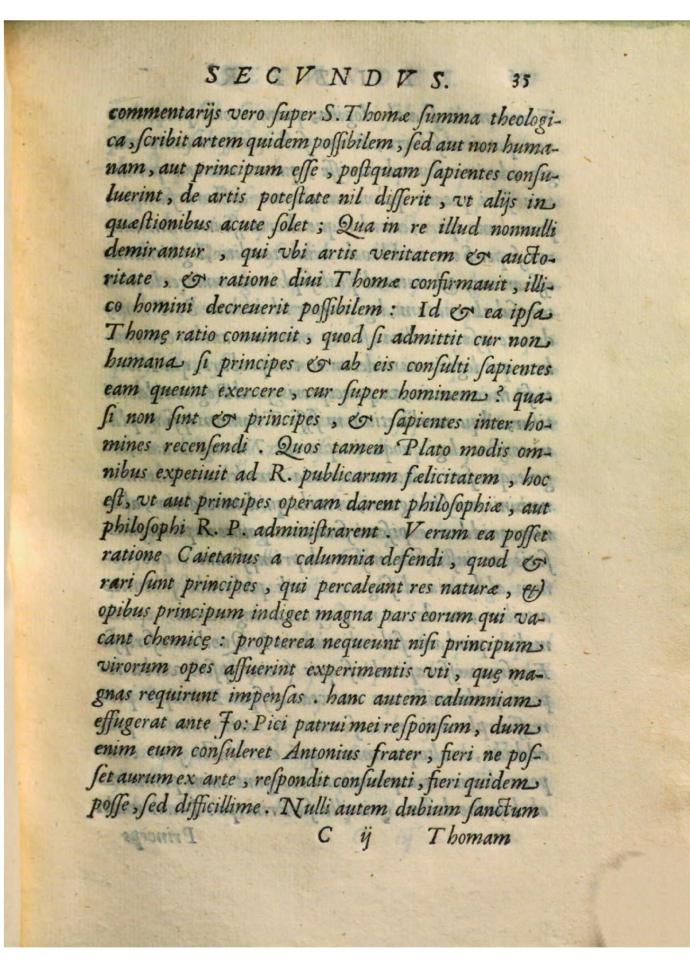 SECVNDVS. 35
commentarijs vero ſuper S. Thomæ ſumma theologi-
ca, ſcribit artem quidem poſſibilem, ſed aut non huma-
nam, aut principum eſſe, poſtquam ſapientes conſu-
luerint, de artis poteſtate nil diſſerit, vt alijs in
quæſtionibus acute ſolet; Qua in re illud nonnulli
demirantur, qui vbi artis veritatem & aucto-
ritate, & ratione diui Thomæ confirmauit, illi-
co homini decreuerit poſſibilem: Id & ea ipſa
Thomę ratio conuincit, quod ſi admittit cur non
humana ſi principes & ab eis conſulti ſapientes
eam queunt exercere, cur ſuper hominem? qua-
ſi non ſint & principes, & ſapientes inter ho-
mines recenſendi. Quos tamen Plato modis om-
nibus expetiuit ad R. publicarum fælicitatem, hoc
eſt, vt aut principes operam darent philoſophiæ, aut
philoſophi R. P. adminiſtrarent. Verum ea poſſet
ratione Caietanus a calumnia defendi, quod &
rari ſunt principes, qui percaleant res naturæ, &
opibus principum indiget magna pars eorum qui va-
cant chemicę: propterea nequeunt niſi principum
virorum opes affuerint experimentis vti, quę ma-
gnas requirunt impenſas. hanc autem calumniam
effugerat ante Jo: Pici patrui mei reſponſum, dum
enim eum conſuleret Antonius frater, fieri ne poſ-
ſet aurum ex arte, reſpondit conſulenti, fieri quidem
poſſe, ſed difficillime. Nulli autem dubium ſanctum
C ij Thomam